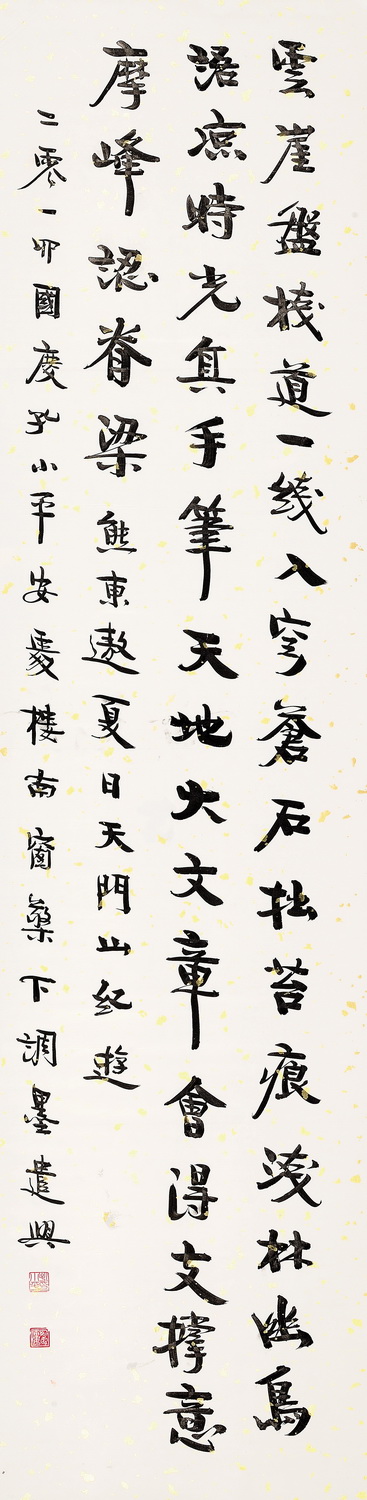 雲崖盤棧道一綫入穹蒼石拙苔痕淺林幽鳥
語涼時光真手筆天地大文章會得支撐意
摩峰認脊梁熊東遨夏日天門山紀遊
二零一國慶孔小平安樓南窗下調墨遣興